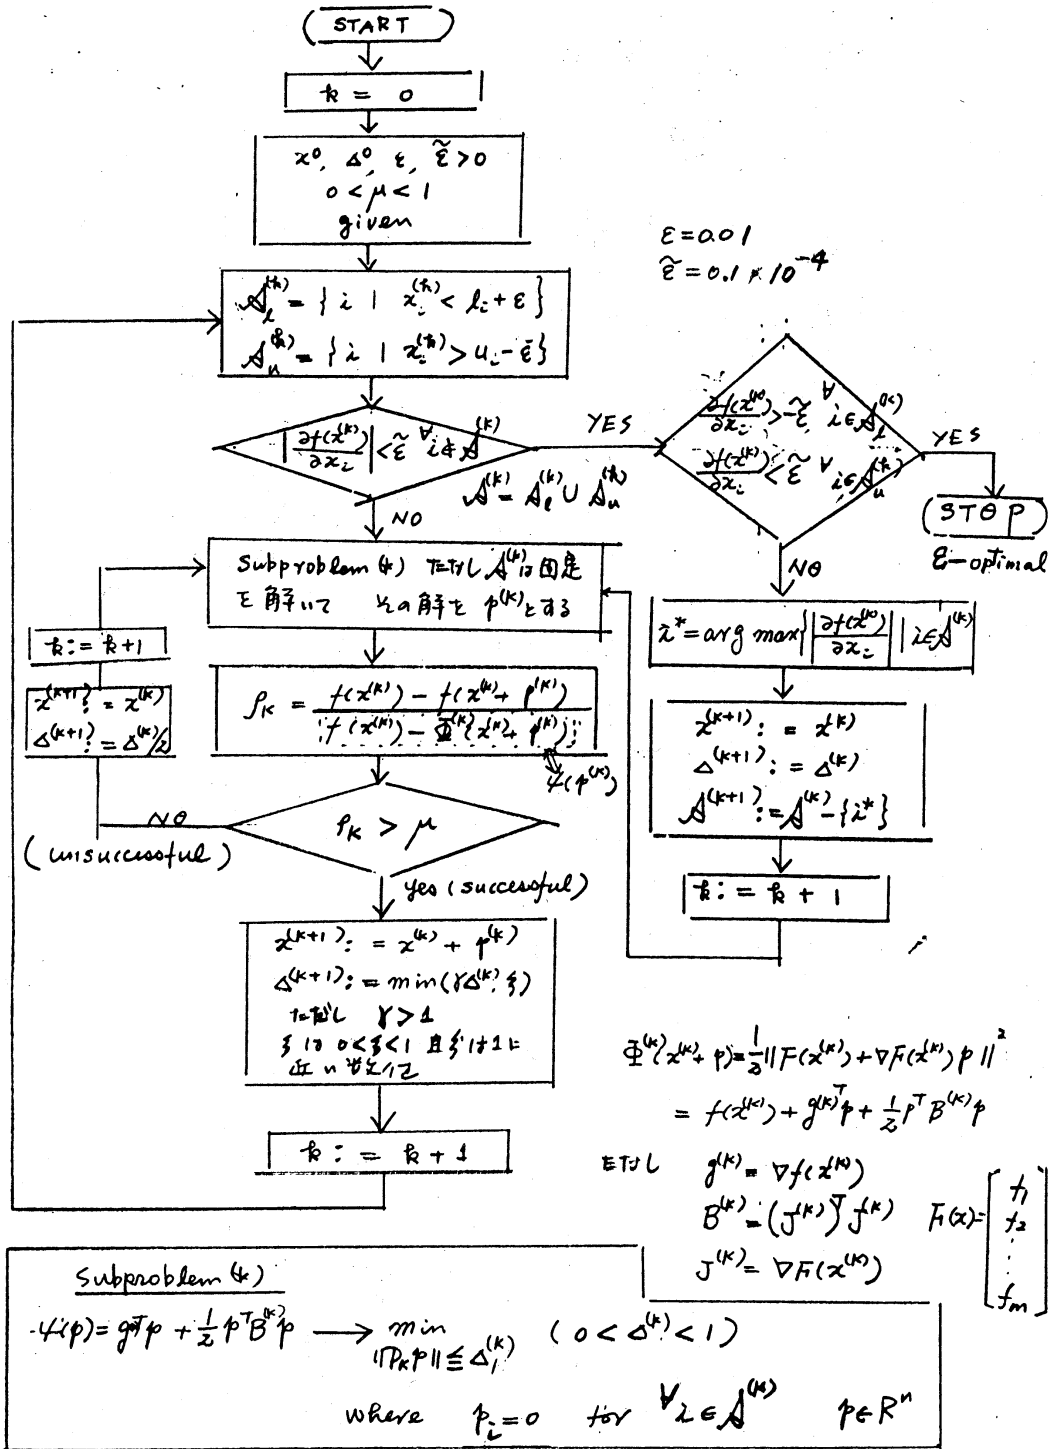 START
k = 0
x⁰, Δ⁰, ε, ε̃ > 0
0 < μ < 1
given
ε = 0.01
ε̃ = 0.1 × 10⁻⁴
𝒜_l^(k) = { i | x_i^(k) < l_i + ε }
𝒜_u^(k) = { i | x_i^(k) > u_i - ε }
|∂f(x^(k))/∂x_i| < ε̃ ∀ i ∉ 𝒜^(k)
YES
𝒜^(k) = 𝒜_l^(k) ∪ 𝒜_u^(k)
NO
∂f(x^(k))/∂x_i > -ε̃, ∀ i ∈ 𝒜_l^(k)
∂f(x^(k))/∂x_i < ε̃ ∀ i ∈ 𝒜_u^(k)
YES
STOP
ε-optimal
NO
Subproblem (k) ただし 𝒜^(k)は固定
を解いて その解を p^(k)とする
k := k+1
x^(k+1) := x^(k)
Δ^(k+1) := Δ^(k)/2
ρ_k = (f(x^(k)) - f(x^(k) + p^(k))) / (f(x^(k)) - Φ^(k)(x^(k) + p^(k)))
ψ(p^(k))
ρ_k > μ
NO
(unsuccessful)
yes (successful)
i* = arg max{ |∂f(x^(k))/∂x_i| | i ∈ 𝒜^(k) }
x^(k+1) := x^(k)
Δ^(k+1) := Δ^(k)
𝒜^(k+1) := 𝒜^(k) - {i*}
k := k + 1
x^(k+1) := x^(k) + p^(k)
Δ^(k+1) := min(γΔ^(k), ξ)
ただし γ > 1
ξ は 0<ξ<1 且ξは1に
近い
k := k + 1
Φ^(k)(x^(k) + p) = 1/2 ||F(x^(k)) + ∇F(x^(k)) p||²
= f(x^(k)) + g^(k)T p + 1/2 p^T B^(k) p
ただし g^(k) = ∇f(x^(k))
B^(k) = (J^(k))^T J^(k)
J^(k) = ∇F(x^(k))
F(x) = [f₁ f₂ ⋮ f_m]
Subproblem (k)
ψ(p) = g^T p + 1/2 p^T B^(k) p → min (0 < Δ^(k) < 1)
||P_k p|| ≦ Δ_1^(k)
where p_i = 0 for ∀ i ∈ 𝒜^(k) p ∈ R^n